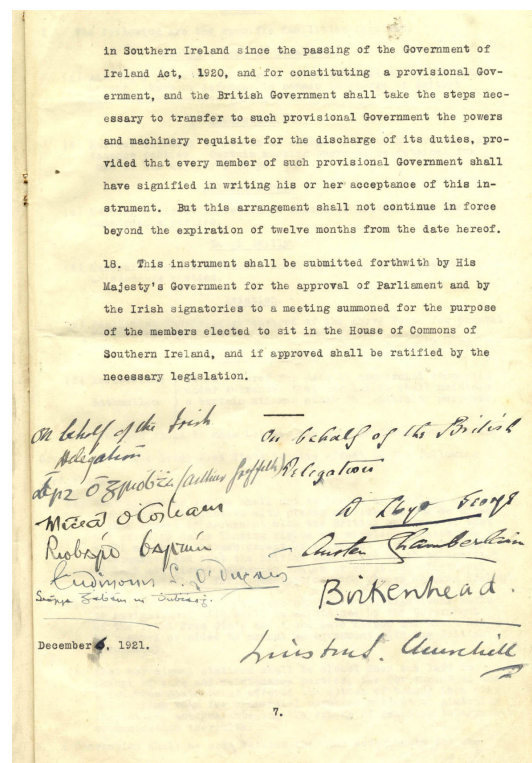 in Southern Ireland since the passing of the Government of
Ireland Act, 1920, and for constituting a provisional Gov-
ernment, and the British Government shall take the steps nec-
essary to transfer to such provisional Government the powers
and machinery requisite for the discharge of its duties, pro-
vided that every member of such provisional Government shall
have signified in writing his or her acceptance of this in-
strument. But this arrangement shall not continue in force
beyond the expiration of twelve months from the date hereof.
18. This instrument shall be submitted forthwith by His
Majesty's Government for the approval of Parliament and by
the Irish signatories to a meeting summoned for the purpose
of the members elected to sit in the House of Commons of
Southern Ireland, and if approved shall be ratified by the
necessary legislation.
On behalf of the Irish
Delegation
Art Ó Gríobhtha (Arthur Griffith)
Micheál O Coileain
Riobárd Bartún
On behalf of the British
Delegation
D Lloyd George
Austen Chamberlain
Birkenhead.
Winston S. Churchill
December 6, 1921.
7.